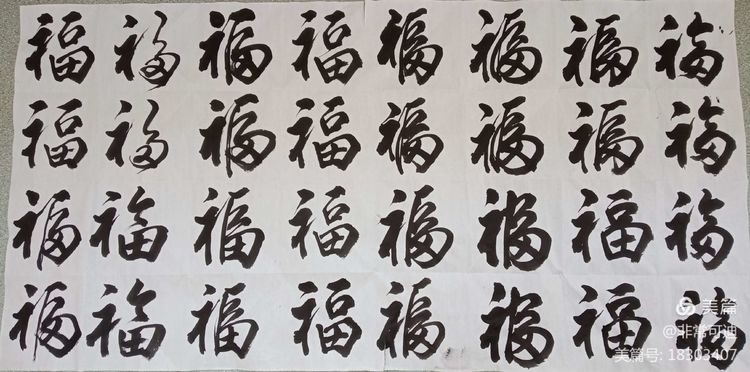 福 福 福 福 福 福 福 福
福 福 福 福 福 福 福 福
福 福 福 福 福 福 福 福
福 福 福 福 福 福 福 福
美篇
@非常可迪
美篇号: 18303407